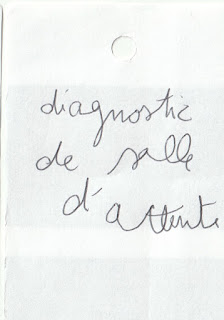 diagnostic
de salle
d'attente